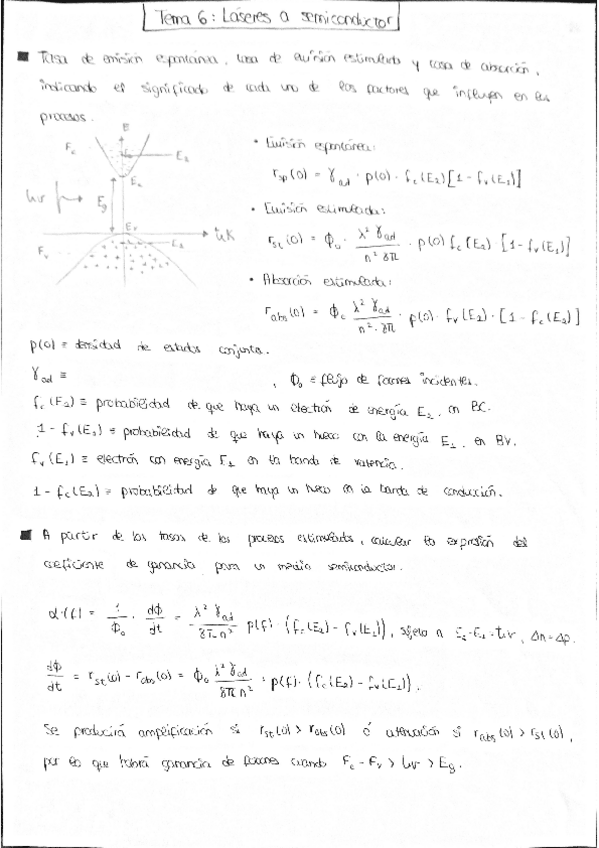 Tema 6: Láseres a semiconductor
■ Tasa de emisión espontánea, tasa de emisión estimulada y tasa de absorción,
indicando el significado de cada uno de los factores que influyen en los
procesos.
E
F_c
E_2
E_c
hν
E_g
E_v
ħK
F_v
E_1
• Emisión espontánea:
r_sp(υ) = γ_ad · p(υ) · f_c(E_2)[1 - f_v(E_1)]
• Emisión estimulada:
r_st(υ) = Φ_υ · λ² γ_ad / n² 8π · p(υ) f_c(E_2) [1 - f_v(E_1)]
• Absorción estimulada:
r_abs(υ) = Φ_c λ² γ_ad / n² · 8π · p(υ) · f_v(E_1) · [1 - f_c(E_2)]
p(υ) ≡ densidad de estados conjunta.
γ_ad ≡ , Φ_υ ≡ flujo de fotones incidentes.
f_c(E_2) ≡ probabilidad de que haya un electrón de energía E_2 en BC.
1 - f_v(E_1) ≡ probabilidad de que haya un hueco con la energía E_1 en BV.
f_v(E_1) ≡ electrón con energía E_1 en la banda de valencia.
1 - f_c(E_2) ≡ probabilidad de que haya un hueco en la banda de conducción.
■ A partir de las tasas de los procesos estimulados, calcular la expresión del
coeficiente de ganancia para un medio semiconductor.
α(f) = 1/Φ_υ · dΦ/dt = λ² γ_ad / 8π n² p(f) · (f_c(E_2) - f_v(E_1)), sujeto a E_2 - E_1 = hν, Δn = Δp.
dΦ/dt = r_st(υ) - r_abs(υ) = Φ_υ λ² γ_ad / 8π n² · p(f) · (f_c(E_2) - f_v(E_1)).
Se producirá amplificación si r_st(υ) > r_abs(υ) ó atenuación si r_abs(υ) > r_st(υ),
por lo que habrá ganancia de fotones cuando F_c - F_v > hν > E_g.